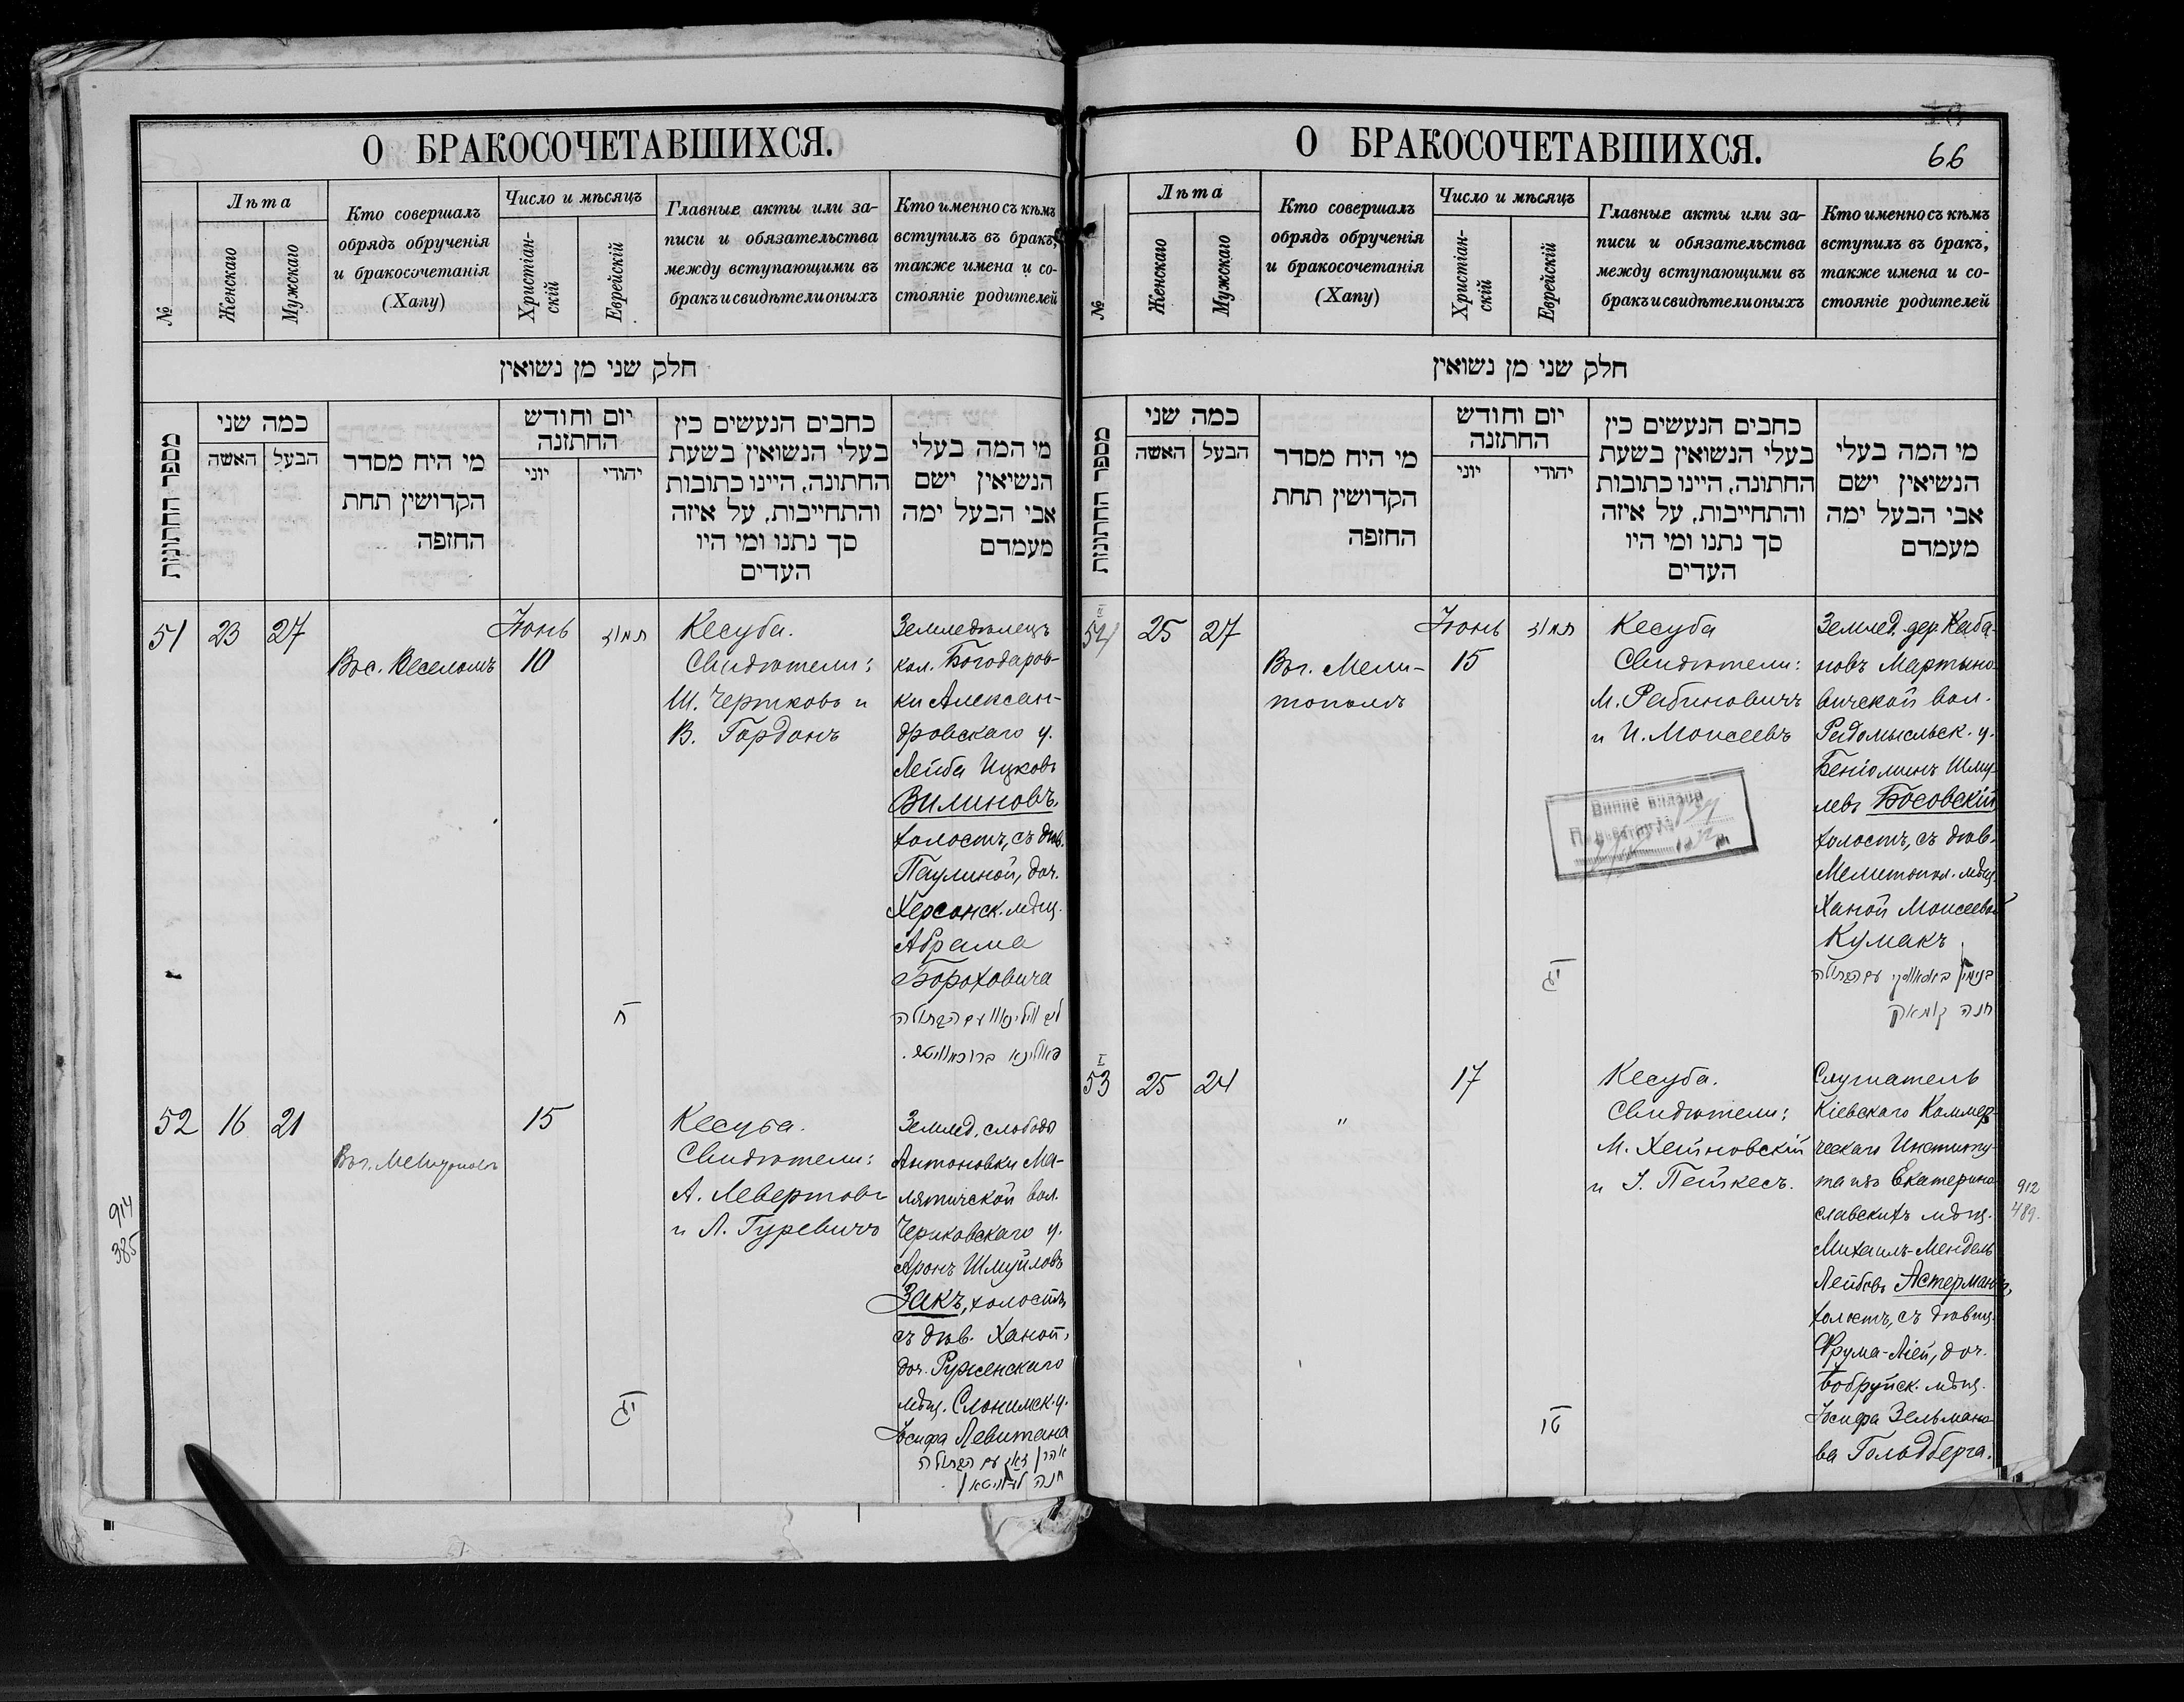 О БРАКОСОЧЕТАВШИХСЯ.
№
Лѣта
Женскаго
Мужскаго
Кто совершалъ
обрядъ обрученія
и бракосочетанія
(Хапу)
Число и мѣсяцъ
Христіан-
скій
Еврейскій
Главные акты или за-
писи и обязательства
между вступающими въ
бракъ и свидѣтели оныхъ
Кто именно съ кѣмъ
вступилъ въ бракъ,
также имена и со-
стояніе родителей
חלק שני מן נשואין
מספר החתונות
כמה שני
האשה
הבעל
מי היח מסדר
הקדושין תחת
החופה
יום וחודש
החתונה
יוני
יהודי
כחבים הנעשים כין
בעלי הנשואין בשעת
החתונה, היינו כתובות
והתחייבות, על איזה
סך נתנו ומי היו
העדים
מי המה בעלי
הנשיאין ישם
אבי הבעל ימה
מעמדם
51
23
27
Въ с. Веселомъ
Іюнь
10
תמוז
ח
Кесуба.
Свидѣтели:
Ш. Чертковъ и
В. Гордонъ
Земледѣлецъ
кол. Богодаров-
ки Алексан-
дровскаго у.
Лейба Ицковъ
Вилиновъ,
холостъ, съ дѣв.
Паулиной, доч.
Херсонск. мѣщ.
Абрама
Бороховича
52
16
21
Въ г. Мелитополѣ
15
יג
Кесуба.
Свидѣтели:
А. Левертовъ
и Л. Гуревичъ
Землед. слободы
Антоновки Ма-
лятичской вол.
Чериковскаго у.
Аронъ Шмуйловъ
Закъ, холостъ
съ дѣв. Ханой,
доч. Руженскаго
мѣщ. Слонимск. у.
Іосифа Левитана
אהרן זאק עם הבתולה
חנה לעוויטאן
914
385
О БРАКОСОЧЕТАВШИХСЯ.
66
№
Лѣта
Женскаго
Мужскаго
Кто совершалъ
обрядъ обрученія
и бракосочетанія
(Хапу)
Число и мѣсяцъ
Христіан-
скій
Еврейскій
Главные акты или за-
писи и обязательства
между вступающими въ
бракъ и свидѣтели оныхъ
Кто именно съ кѣмъ
вступилъ въ бракъ,
также имена и со-
стояніе родителей
חלק שני מן נשואין
מספר החתונות
כמה שני
האשה
הבעל
מי היח מסדר
הקדושין תחת
החופה
יום וחודש
החתונה
יוני
יהודי
כחבים הנעשים כין
בעלי הנשואין בשעת
החתונה, היינו כתובות
והתחייבות, על איזה
סך נתנו ומי היו
העדים
מי המה בעלי
הנשיאין ישם
אבי הבעל ימה
מעמדם
25
27
Въ г. Мели-
тополѣ
Іюнь
15
תמוז
יג
Кесуба
Свидѣтели:
М. Рабиновичъ
и И. Моисеевъ
Землед. дер. Каба-
новъ Мартыно-
вичской вол.
Радомысльск. у.
Беніоминъ Шму-
левъ Босовскій
холостъ, съ дѣв.
Мелитопол. мѣщ.
Ханой Моисеевой
Кумакъ
חנה קומאק
53
25
24
"
17
טו
Кесуба.
Свидѣтели:
М. Хейновскій
и І. Пейкесъ.
Слушатель
Кіевскаго Коммер-
ческаго Институ-
та изъ Екатерино-
славскихъ мѣщ.
Михаилъ-Мендель
Лейбовъ Астерманъ,
холостъ, съ дѣвиц.
Фрума-Ліей, доч.
Бобруйск. мѣщ.
Іосифа Зельмано-
ва Гольдберга.
912
489.